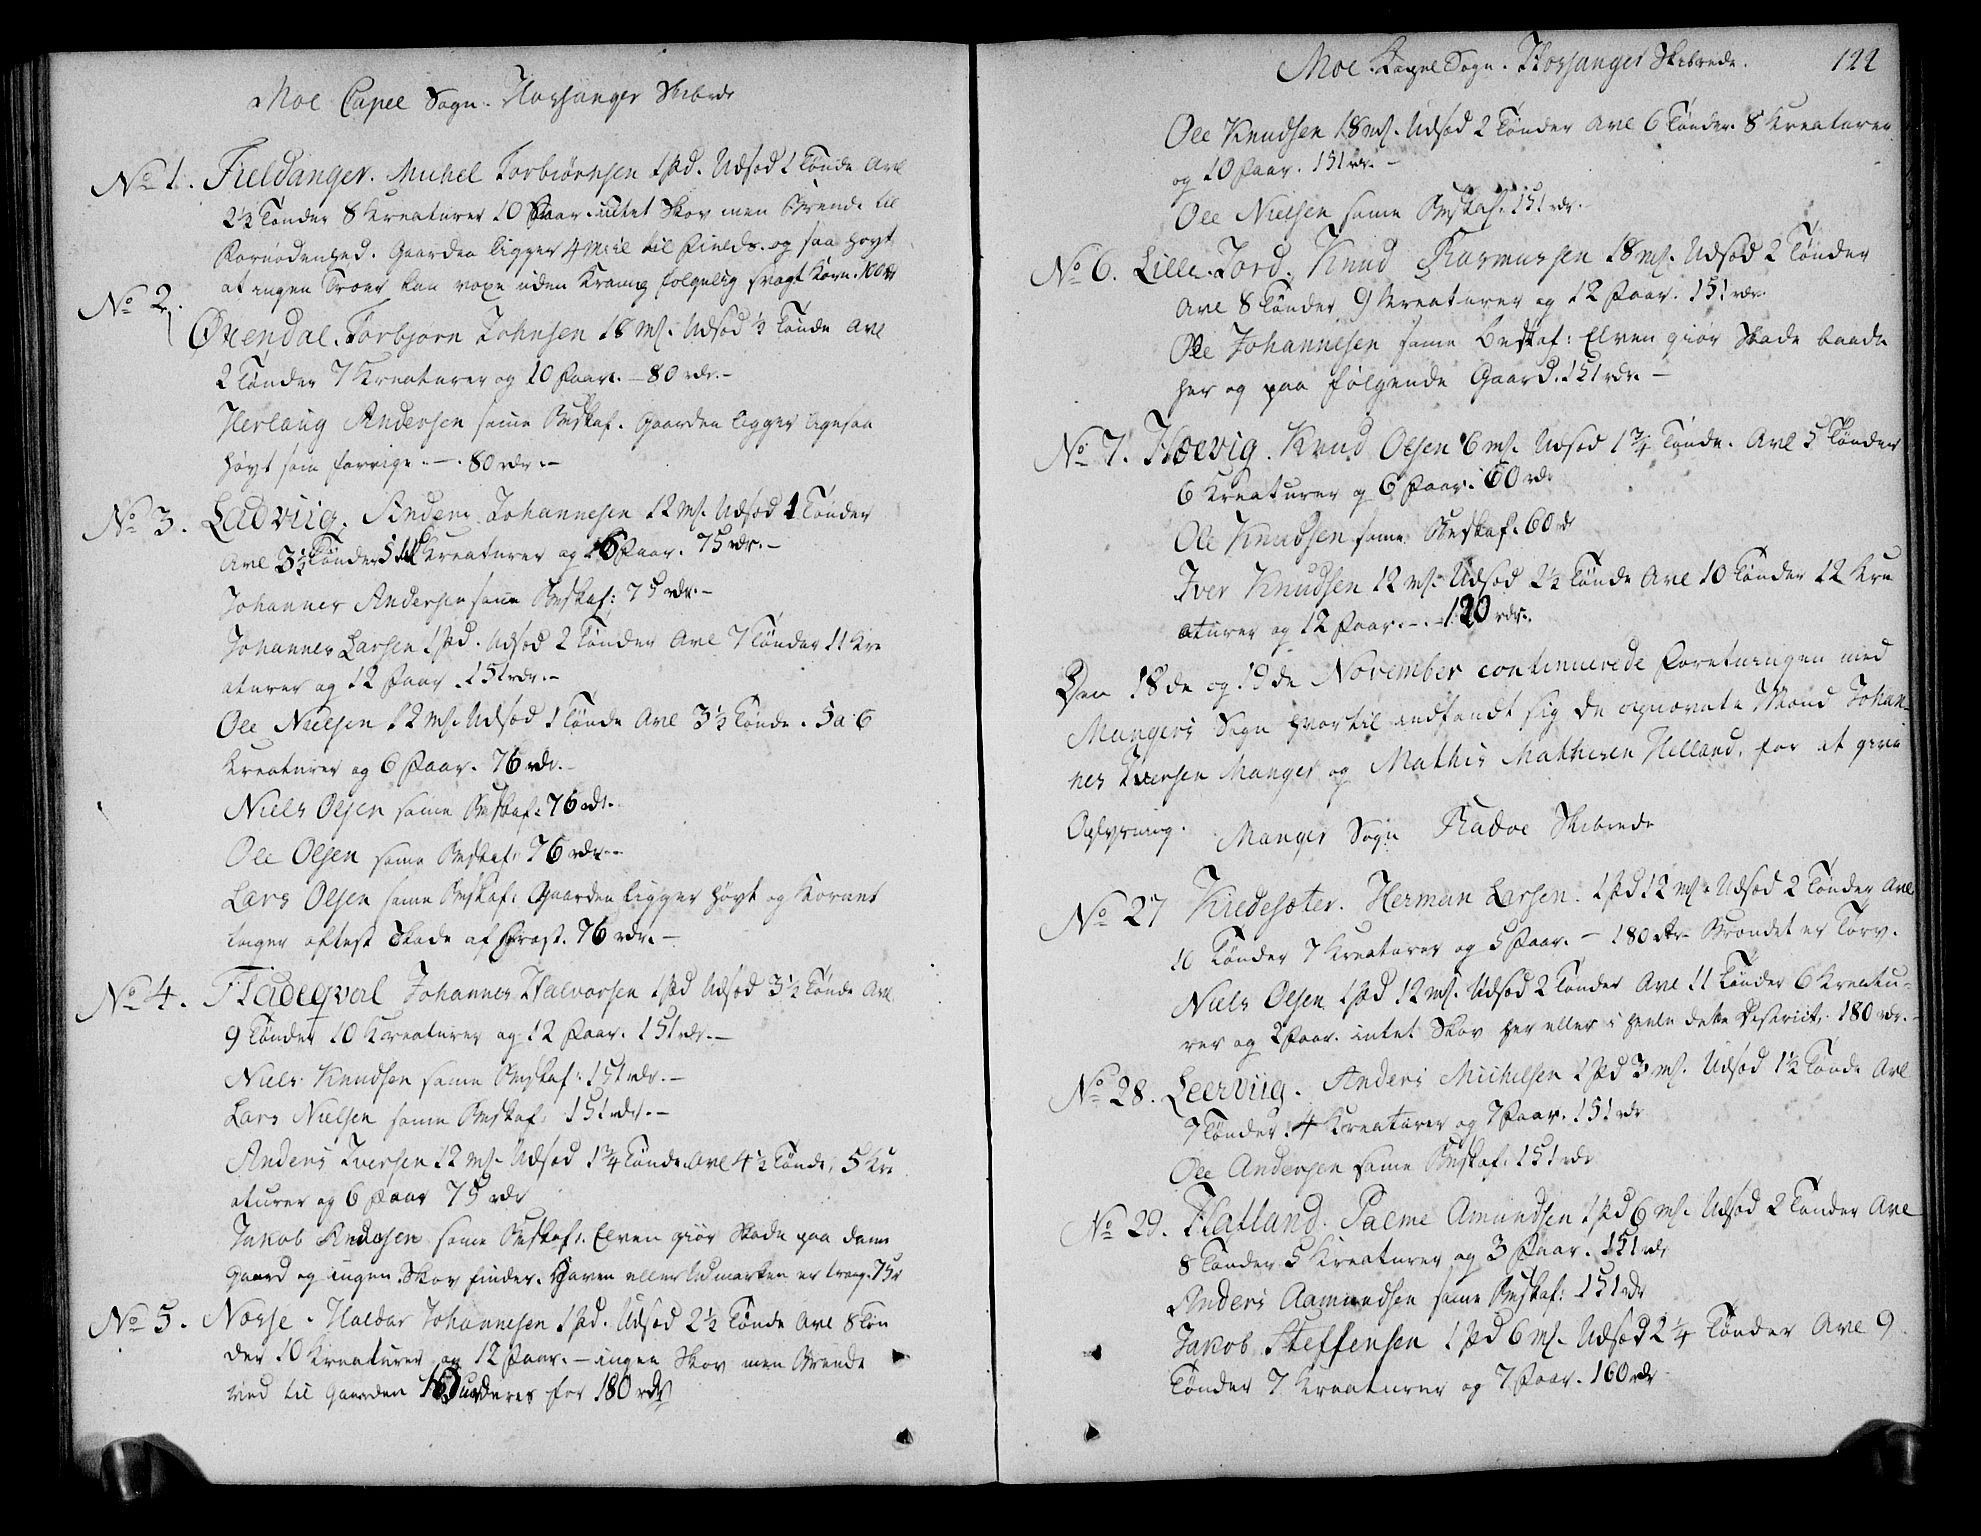 Moe Capel Sogn. Hosanger Skibrede
No 1. Fieldanger. Michel Torbiørnsen 1 pd. Udsød 1 Tønde Avl
2½ Tønder 8 Kreaturer 10 Faar. intet Skov men Brende til
Fornødenhed. Gaarden ligger 4 Miil til Fields. og saa høyt
at ingen Træer kan voxe uden Kraing følgelig svagt Korn. 100 rdr
No 2. Oxendal. Torbjørn Johnsen 18 mß. Udsød ½ Tønde Avl
2 Tønder 7 Kreaturer og 10 Faar. — 80 rdr. —
Herlaug Andersen same Beskaf. Gaarden ligger ligesaa
høyt som forrige. — . 80 rdr. —
No 3. Ladviig. Anders Johannesen 12 mß. Udsød 1 Tønder
Avl 3½ Tønder 5 Kreaturer og 6 Faar. 75 rdr. —
Johannes Andersen same Beskaf: 75 rdr. —
Johannes Larsen 1 pd. Udsød 2 Tønder Avl 7 Tønder 11 Kre
aturer og 12 Faar . 151 rdr. —
Ole Nielsen 12 mß. Udsød 1 Tønde Avl 3½ Tønde . 5 a 6
Kreaturer og 6 Faar. 76 rdr. —
Niels Olsen same Beskaf. 76 rdr.
Ole Olsen same Beskaf: 76 rdr. —
Lars Olsen same Beskaf: Gaarden ligger høyt og Kornet
tager oftest Skade af Frost. 76 rdr. —
No 4. Fladeqval Johannes Halvorsen 1 pd Udsød 3½ Tønde Avl
9 Tønder 10 Kreaturer og 12 Faar. 151 rdr. —
Niels Knudsen same Beskaf: 151 rdr. —
Lars Nielsen same Beskaf: 151 rdr. —
Anders Iversen 12 mß. Udsød 1¾ Tønde Avl 4½ Tønde, 5 Kre
aturer og 6 Faar 75 rdr
Jakob same Beskaf: Elven giør Skade paa denne
Gaard og ingen Skov findes. Haven eller Udmarken er trang. 75 r
No 5. Nosse. Haldor Johannesen 1 pd. Udsød 2½ Tønde Avl 8 Tøn
der 10 Kreaturer og 12 Faar. — ingen Skov men Brende
ved til Gaarden vurderes for 180 rdr
Moe Capel Sogn. Hosanger Skibrede. 122
Ole Knudsen 18 mß. Udsød 2 Tønder Avl 6 Tønder. 8 Kreaturer
og 10 Faar. 151 rdr. —
Ole Nielsen same Beskaf. 151 rdr.
No 6. Lille Tord. Knud Rasmussen 18 mß. Udsød 2 Tønder
Avl 8 Tønder 9 Kreaturer og 12 Faar. 151 rdr.
Ole Johannesen same Beskaf: Elven giør Skade baade
her og paa følgende Gaard. 151 rdr. —
No 7. Hoevig. Knud Olsen 6 mß. Udsød 1¾ Tønde. Avl 5 Tønder
6 Kreaturer og 6 Faar. 60 rdr
Ole Knudsen same Beskaf. 60 rdr
Iver Knudsen 12 mß. Udsød 2½ Tønde Avl 10 Tønder 12 Kre
aturer og 12 Faar. — . — 120 rdr.
Den 18de og 19de November continuerede Forretningen med
Mangers Sogn hvortil indfandt sig de opnevnte Mænd Johan-
nes Iversen Manger og Mathis Mathisen Helland, for at give
Oplysning. Manger Sogn Radøe Skibrede
No 27 Kredesæter. Herman Larsen. 1 pd 12 mß. Udsød 2 Tønder Avl
10 Tønder 7 Kreaturer og 5 Faar. — 180 rdr. Brændet er Torv.
Niels Olsen 1 pd 12 mß. Udsød 2 Tønder Avl 11 Tønder 6 Kreatu-
rer og 2 Faar. intet Skov her eller i heele dette District. 180 rdr. —
No 28. Leerviig. Anders Michelsen 1 pd 3 mß. Udsød 1½ Tønde Avl
7 Tønder. 4 Kreaturer og 7 Faar. 151 rdr
Ole Andersen same Beskaf: 151 rdr
No 29. Hatland. Palme Amundsen 1 pd 6 mß. Udsød 2 Tønder Avl
8 Tønder 5 Kreaturer og 3 Faar. 151 rdr
Anders Aamundsen same Beskaf: 151 rdr
Jakob Steffensen 1 pd 6 mß. Udsød 2¼ Tønder Avl 9
Tønder 7 Kreaturer og 7 Faar. 160 rdr